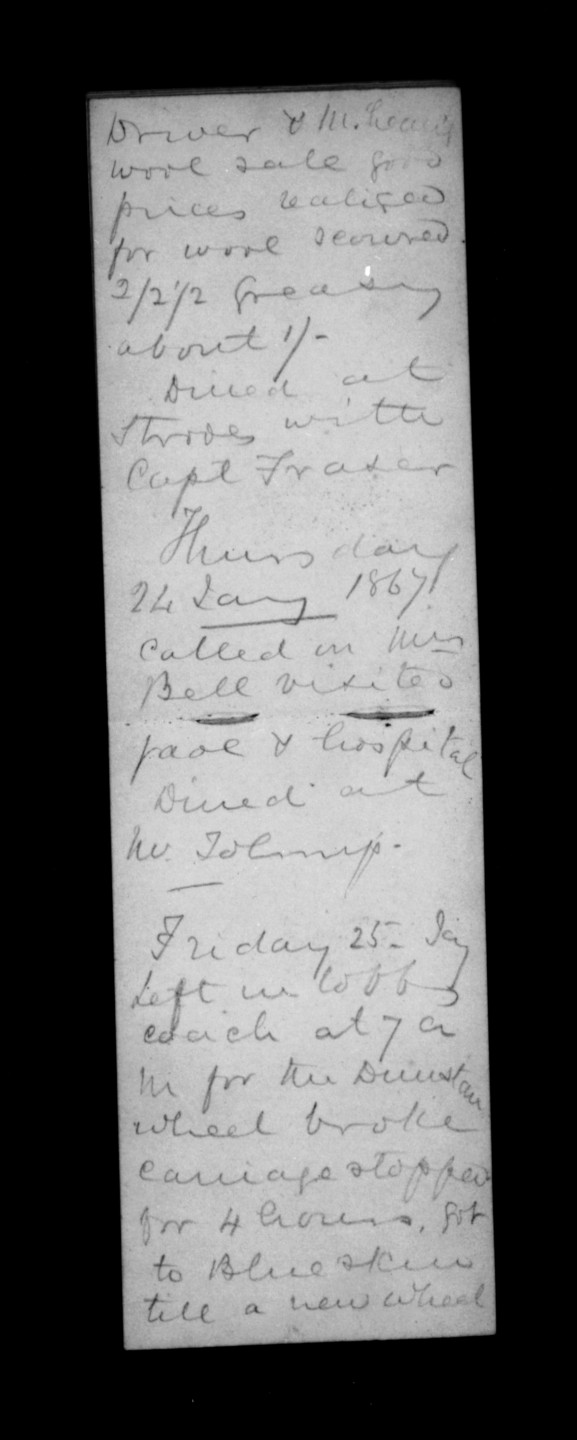 Driver & McLean's
wool sale good
prices realized
for wool scoured.
2/2 1/2 Greasy
about 1/-
Dined at
Strodes with
Capt Fraser
Thursday
24 Jany 1867
called on Mrs
Bell visited
gaol & hospital
Dined at
Mr.
Friday 25- Jay
Left in Cobbs
coach at 7 a
m for the Dunstan
wheel broke
carriage stopped
for 4 hours, got
to Blueskin
till a new wheel